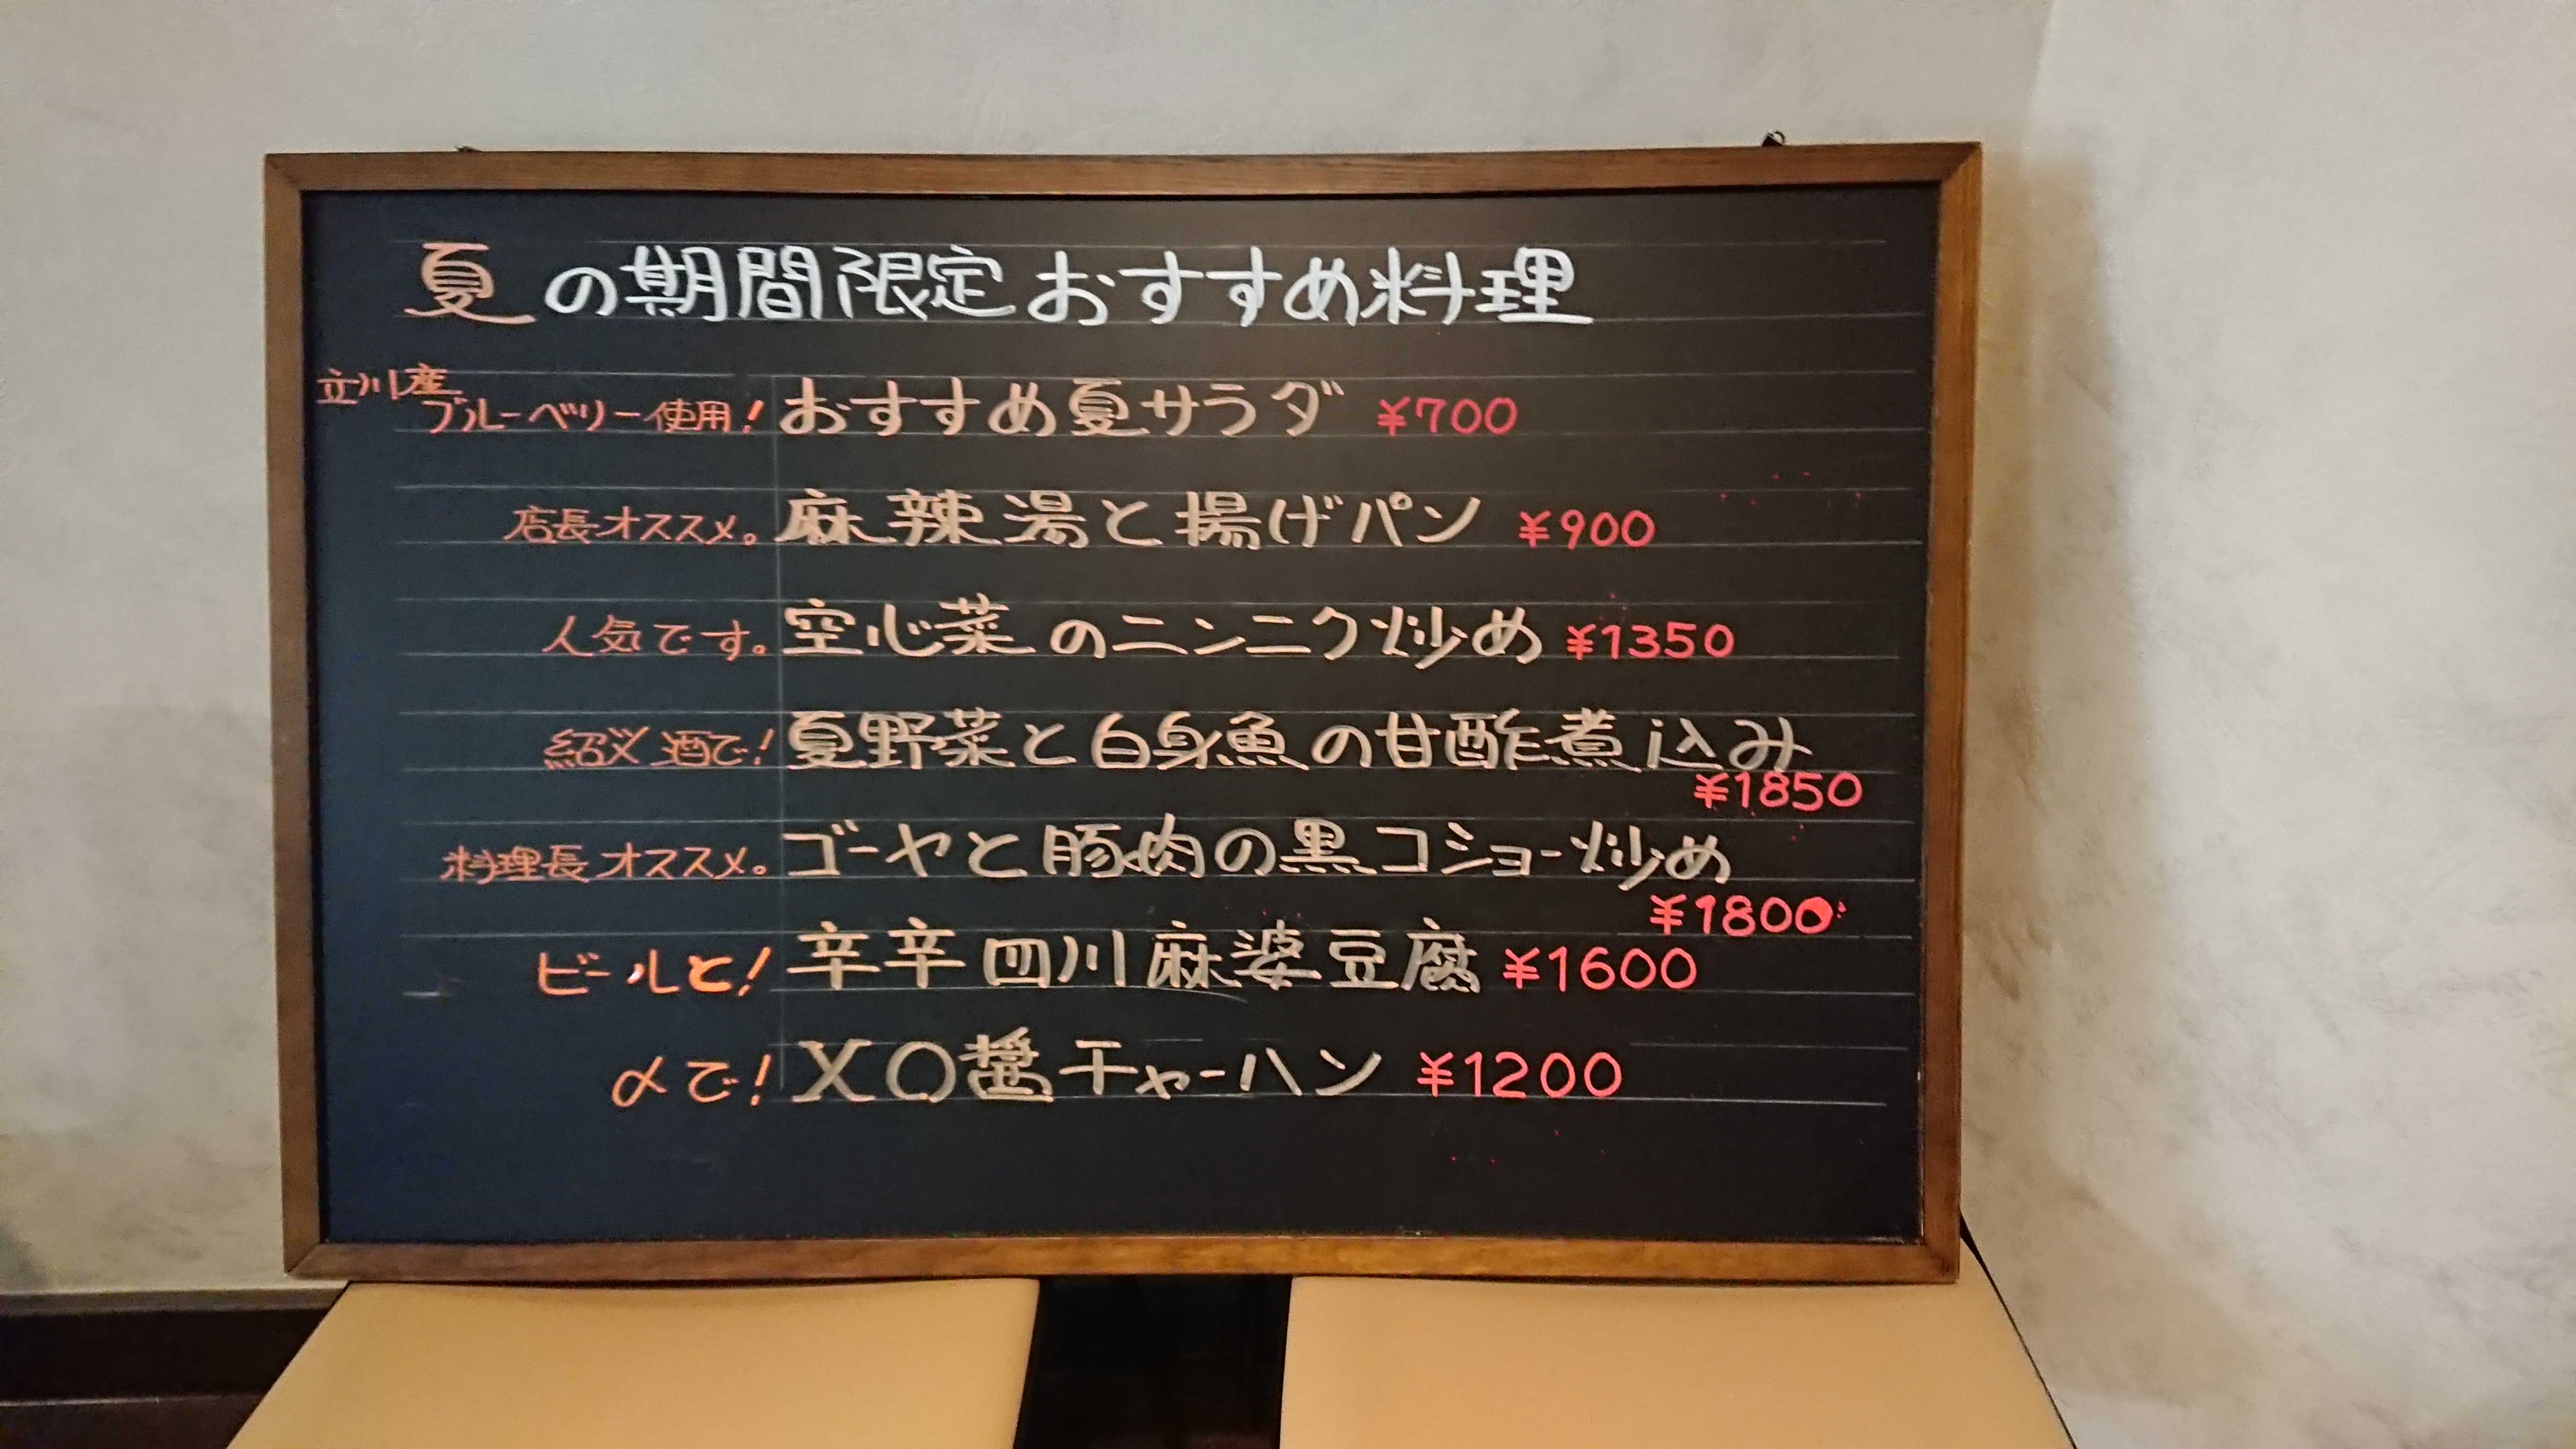 夏の期間限定おすすめ料理
立川産
ブルーベリー使用! おすすめ夏サラダ ¥700
店長オススメ。麻辣湯と揚げパン ¥900
人気です。空心菜のニンニク炒め ¥1350
紹興酒で! 夏野菜と白身魚の甘酢煮込み
¥1850
料理長オススメ。ゴーヤと豚肉の黒コショー炒め
¥1800
ビールと! 辛辛四川麻婆豆腐 ¥1600
〆で! XO醤チャーハン ¥1200